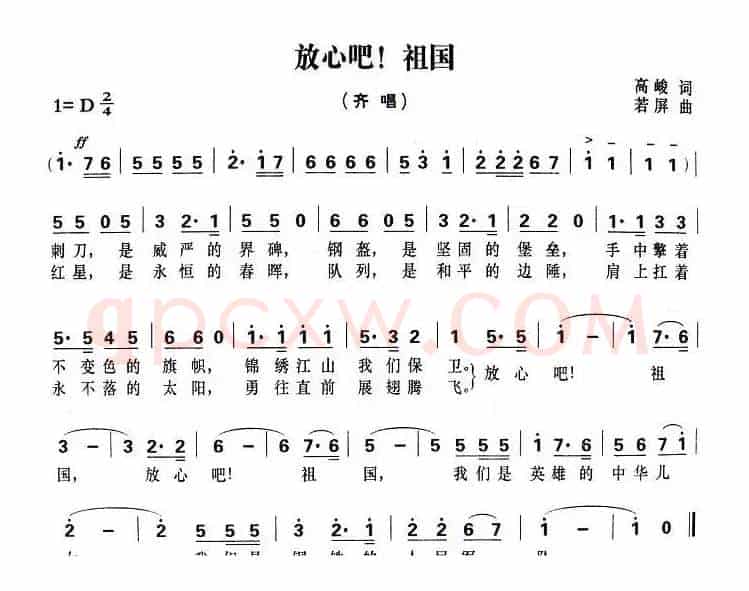 放心吧！祖国
1=D 2/4
（齐 唱）
高 峻 词
若 屏 曲
ff
(1· 7 6 | 5 5 5 5 | 2· 1 7 | 6 6 6 6 | 5 3 1 | 2 2 2 6 7 | 1 1 | 1 1) |
5 5 0 5 | 3 2· 1 | 2 2 0 5 | 6 6 0 5 | 3 2· 1 | 2 2 0 | 1· 1 3 3 |
刺刀，是 威 严 的 界 碑， 钢 盔， 是 坚 固 的 堡 垒， 手 中 擎 着
红星，是 永 恒 的 春 晖， 队 列， 是 和 平 的 边 陲， 肩 上 扛 着
qpcxw.COM
5· 5 4 5 | 6 6 0 | 1· 1 1 1 | 5· 3 2 | 1 5 5 | 1 – | 1 7· 6 |
不 变 色 的 旗 帜， 锦 绣 江 山 我 们 保 卫。 放 心 吧！ 祖
永 不 落 的 太 阳， 勇 往 直 前 展 翅 腾 飞。
3 – | 3 2· 2 | 6 – | 6 7· 6 | 5 – | 5 5 5 5 | 1 7· 6 | 5 6 7 1 |
国， 放 心 吧！ 祖 国， 我 们 是 英 雄 的 中 华 儿
2 – | 2 – | 5 5 5 5 | 3 2· 1 | 2 2 6 | 1 – | 1 0 |